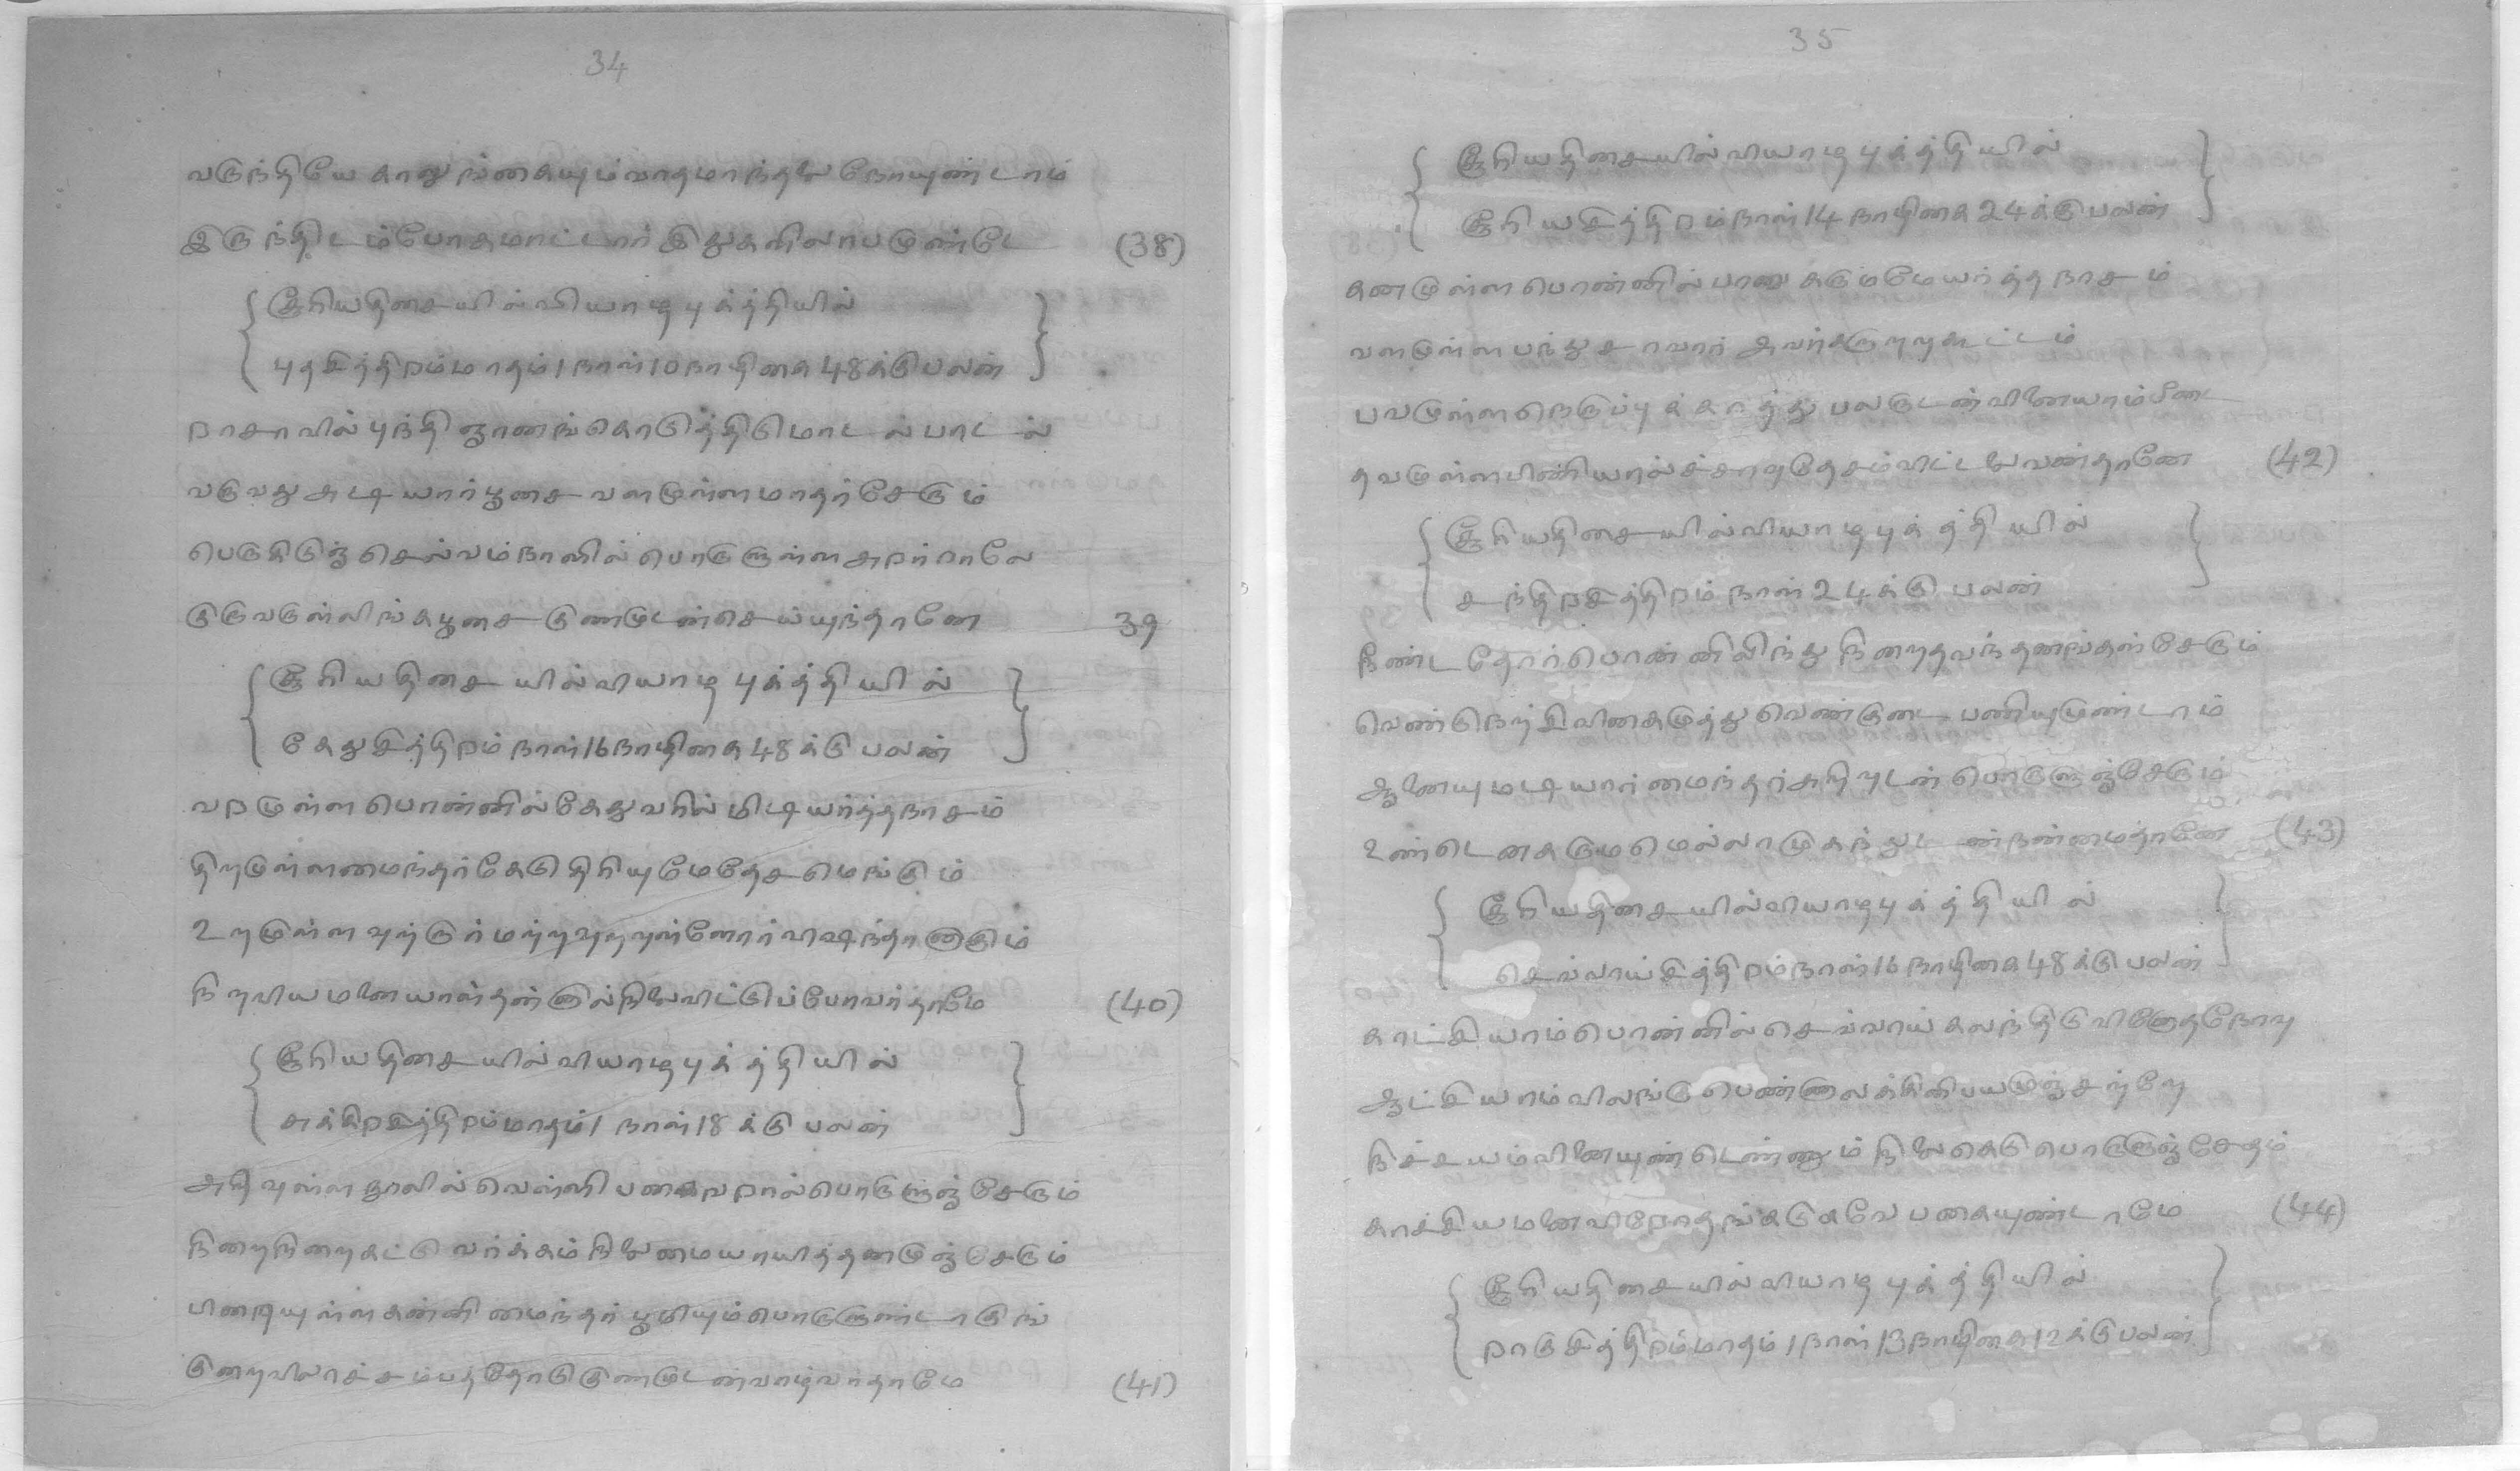 34
வருந்தியே காலுங்கையும் வாதமாந்தலை நோயுண்டாம்
இருந்திடம்போகமாட்டார் இதுகளிலாபமுண்டே (38)
சூரியதிசையில் வியாழ புக்த்தியில்
புதசித்திறம்மாதம் 1 நாள் 10 நாழிகை 48க்கு பலன்
றாசாவில் புந்தி ஞானங்கொடுத்திடுமாடல் பாடல்
வருவது அடியார்பூசை வளமுள்ள மாதர்சேரும்
பெருகிடுஞ் செல்வம்நாளில் பொருளுள்ள அறர்றாலே
குருவருள்லிங்கபூசை குணமுடன்செய்யுந்தானே 39
சூரியதிசையில் வியாழ புக்த்தியில்
கேதுசித்திறம் நாள் 16 நாழிகை 48 க்கு பலன்
வறமுள்ள பொன்னில்கேதுவரில் மிடியர்த்தநாசம்
திறமுள்ளமைந்தர்கேடு திரியுமேதேசமெங்கும்
உறமுள்ள வுற்றார் மற்றவுறவுள்ளோர் விஷந்தானகும்
நிறவியமனையாள்தன்னால்நிலைவிட்டுப்போவர்தாமே (40)
சூரியதிசையில் வியாழபுக்த்தியில்
சுக்கிறசித்திறம்மாதம் 1 நாள் 18 க்கு பலன்
அறிவுள்ள நூலில் வெள்ளி பகைவறால்பொருளுஞ் சேரும்
நிறைநிறைகட்டு வர்க்கம் நிலைமையாயித்தனமுஞ்சேரும்
பிறையுள்ள கன்னி மைந்தர் பூமியும்பொருளுண்டாகுங்
குறைவிலாச்சம்பத்தோடு குணமுடன்வாழ்வர்தாமே (41)
35
சூரியதிசையில் வியாழ புக்த்தியில்
சூரியசித்திறம்நாள் 14 நாழிகை 24க்கு பலன்
கனமுள்ள பொன்னில் பானு கடும்மேயர்த்த நாசம்
வளமுள்ள பந்துசாவார் அவர்களுறவுகூட்டம்
பவமுள்ளநெருப்புக்காத்து பலருடன்வினையாம்பீடை
தவமுள்ளபிணியால்ச்சாவுதேசம்விட்டலைவன்தானே (42)
சூரியதிசையில்வியாழபுக்த்தியில்
சந்திறசித்திறம் நாள் 24க்கு பலன்
நீண்டதோர்பொன்னிலிந்து நிறைதவந்தனங்கள்சேரும்
வெண்டுநற்சிவிகைமுத்து வெண்குடை பணியுமுண்டாம்
ஆனையுமடியார் மைந்தர்அறிவுடன் பொருளுஞ்சேரும்
உண்டெனகருமமெல்லாமுகந்துடன்நன்மைதானே (43)
சூரியதிசையில்வியாழபுக்த்தியில்
செவ்வாய்சித்திறம்நாள் 16 நாழிகை 48 க்கு பலன்
காட்சியாம்பொன்னில்செவ்வாய் கலந்திடுவிரோதநோவு
ஆட்சியாம்விலங்கு பெண்ணாலக்கினிபயமுஞ்சற்றே
நிச்சயம்வினையுண்டெண்ணும் நிலைகெடு பொருளுஞ்சேதம்
காச்சியமனைவிறோதங்கடுகவே பகையுண்டாமே (44)
சூரியதிசையில்வியாழபுக்த்தியில்
றாகுசித்திறம்மாதம் 1 நாள் 13 நாழிகை 12 க்கு பலன்